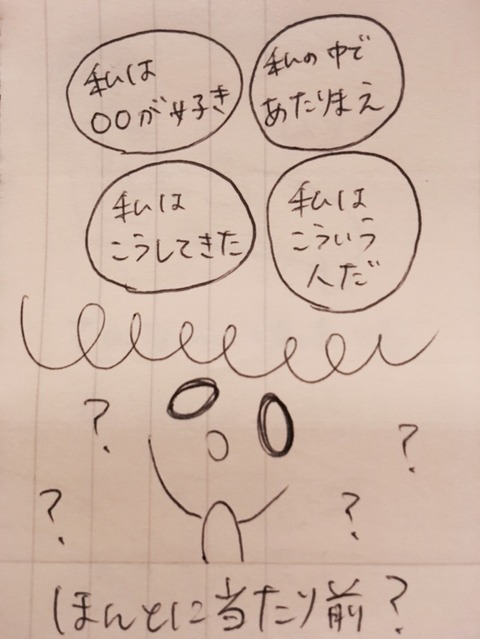 私は
〇〇が好き
私の中で
あたりまえ
私は
こうしてきた
私は
こういう
人だ
?
?
?
?
ほんとに当たり前?